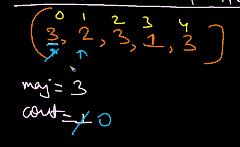 0 1 2 3 4
(3, 2, 3, 1, 3)
maj = 3
cout = 1 0